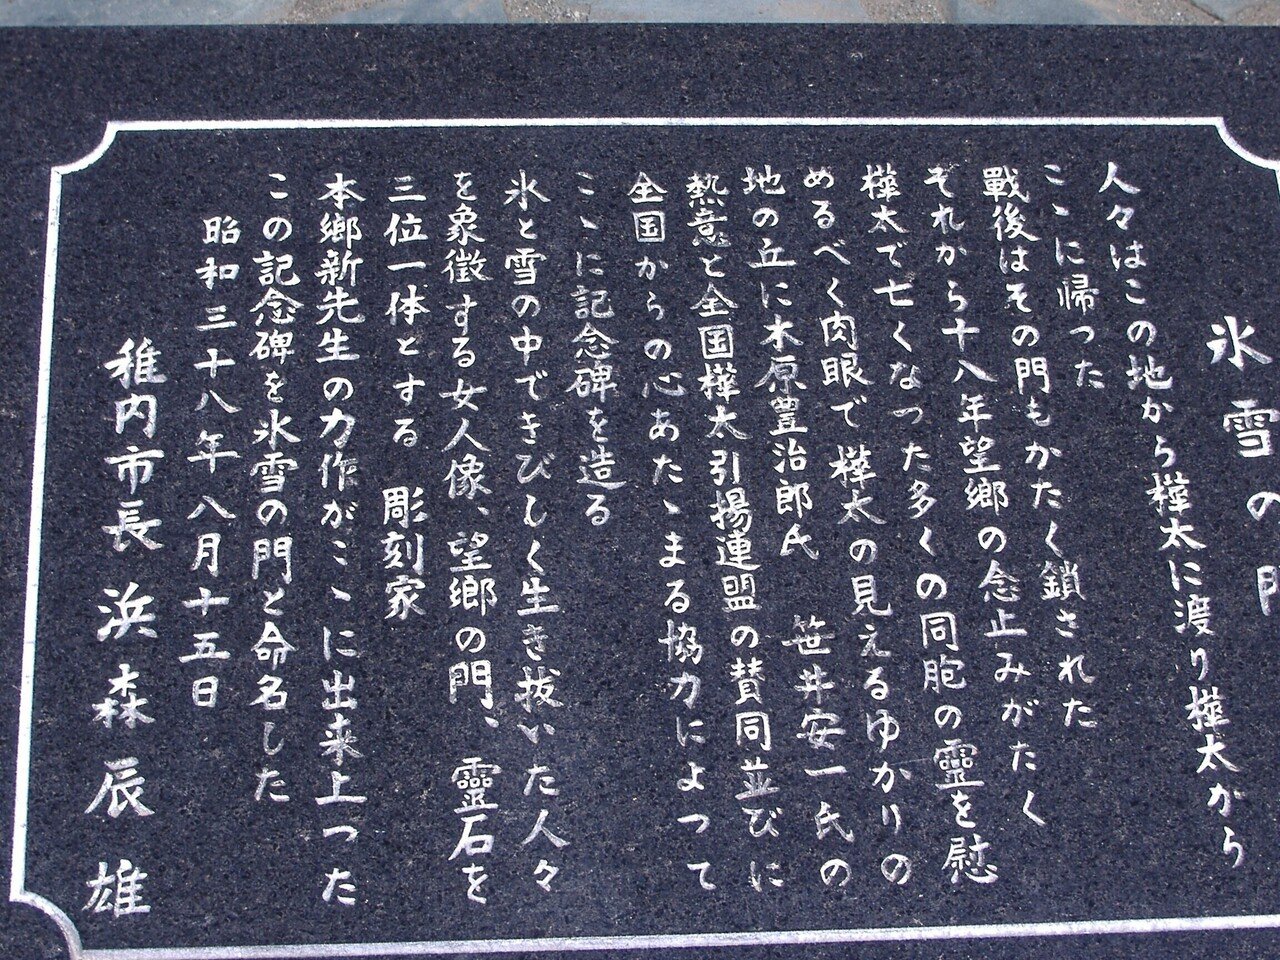 氷雪の門
人々はこの地から樺太に渡り樺太から
こゝに帰った
戰後はその門もかたく鎖された
それから十八年望郷の念止みがたく
樺太で亡くなった多くの同胞の靈を慰
めるべく肉眼で樺太の見えるゆかりの
地の丘に木原豊治郎氏 笹井安一氏の
熱意と全国樺太引揚連盟の賛同並びに
全国からの心あたゝまる協力によって
こゝに記念碑を造る
氷と雪の中できびしく生き抜いた人々
を象徴する女人像、望郷の門、靈石を
三位一体とする 彫刻家
本郷新先生の力作がこゝに出来上った
この記念碑を氷雪の門と命名した
昭和三十八年八月十五日
稚内市長 浜森辰雄